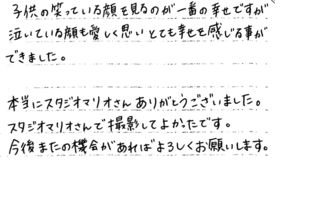 子供の笑っている顔を見るのが一番の幸せですが、
泣いている顔も愛しく思いとても幸せを感じる事が
できました。
本当にスタジオマリオさんありがとうございました。
スタジオマリオさんで撮影してよかったです。
今後またの機会があればよろしくお願いします。